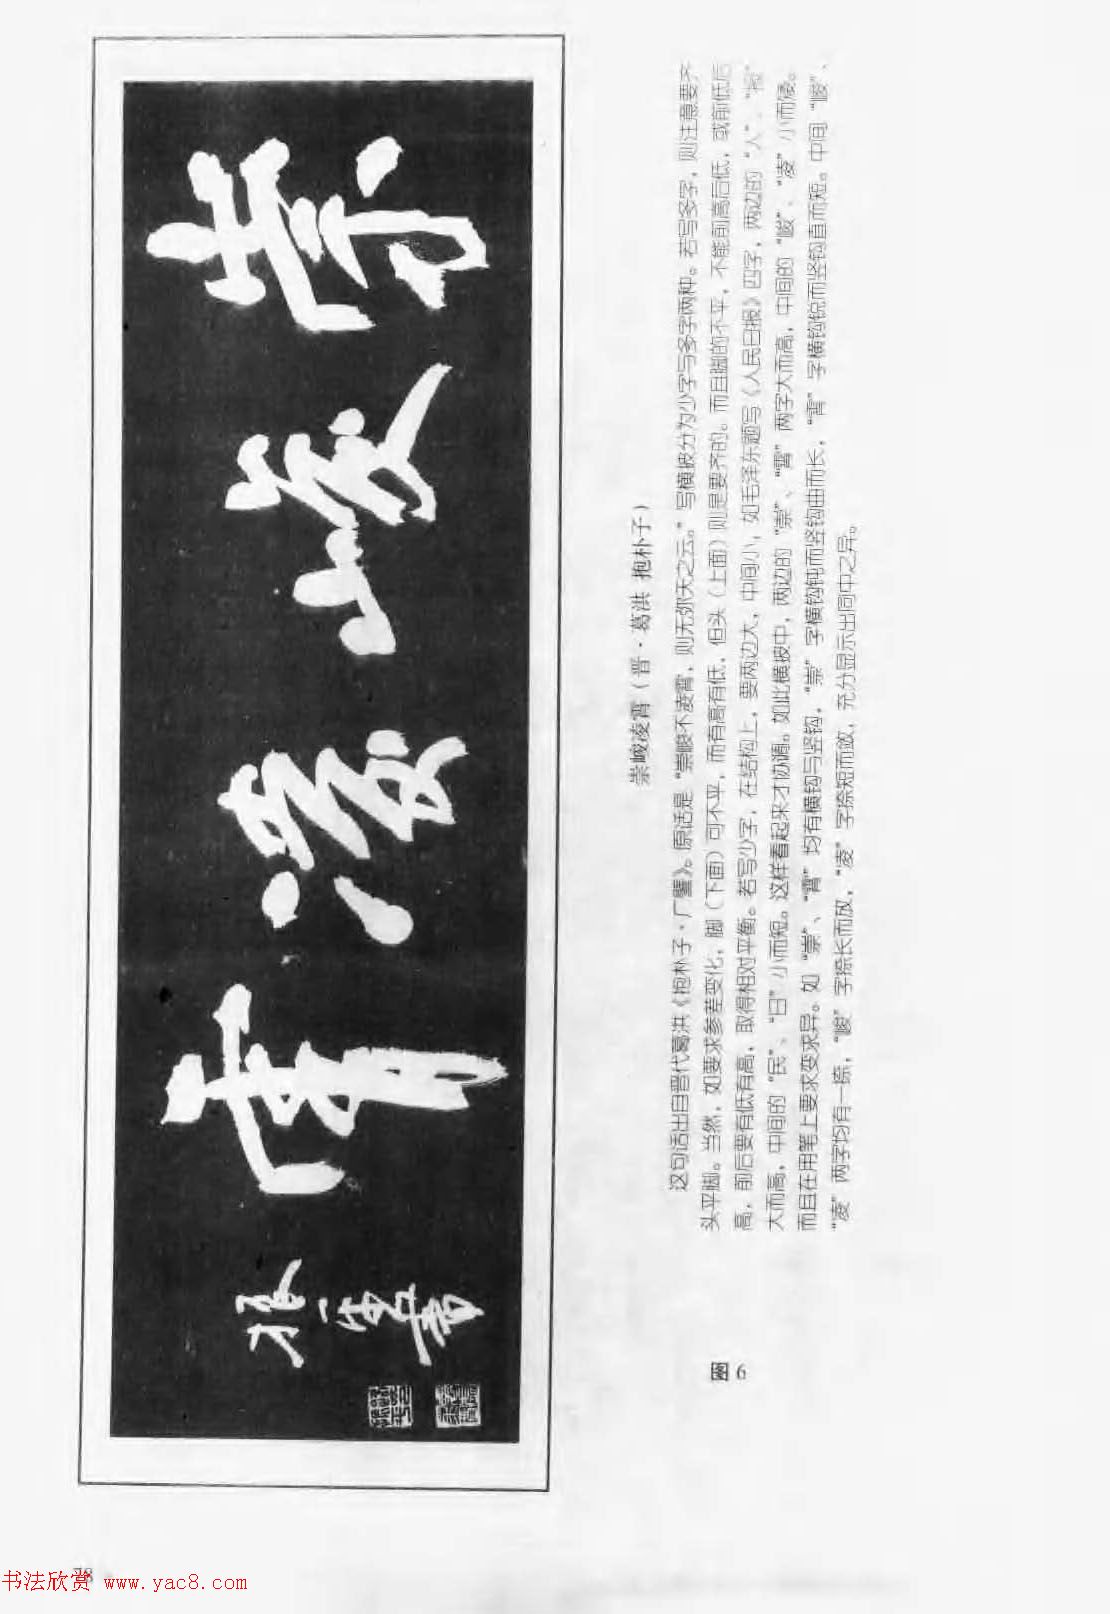 崇峻凌霄
崇峻凌霄（晋·葛洪 抱朴子）
这句话出自晋代葛洪《抱朴子·广譬》。原话是“崇峻不凌霄，则无弥天之云。”写横披分为少字与多字两种。若写多字，则注意要齐
头平脚。当然，如要求参差变化，脚（下面）可不平，而有高有低，但头（上面）则是要齐的。而且脚的不平，不能前高后低，或前低后
高，前后要有低有高，取得相对平衡。若写少字，在结构上，要两边大，中间小，如毛泽东题写《人民日报》四字，两边的“人”、“报”
大而高，中间的“民”、“日”小而短。这样看起来才协调。如此横披中，两边的“崇”、“霄”两字大而高，中间的“峻”、“凌”小而矮。
而且在用笔上要求变求异。如“崇”、“霄”均有横钩与竖钩，“崇”字横钩钝而竖钩曲而长，“霄”字横钩锐而竖钩直而短。中间“峻”、
“凌”两字均有一捺，“峻”字捺长而放，“凌”字捺短而敛，充分显示出同中之异。
图 6
78
书法欣赏 www.yac8.com